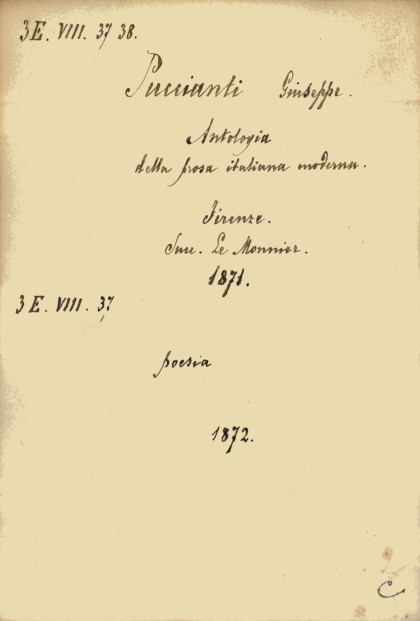 3E. VIII. 37 38.
Puccianti Giuseppe.
Antologia
della prosa italiana moderna.
Firenze.
Succ. Le Monnier.
1871.
3 E. VIII. 37
poesia
1872.
C